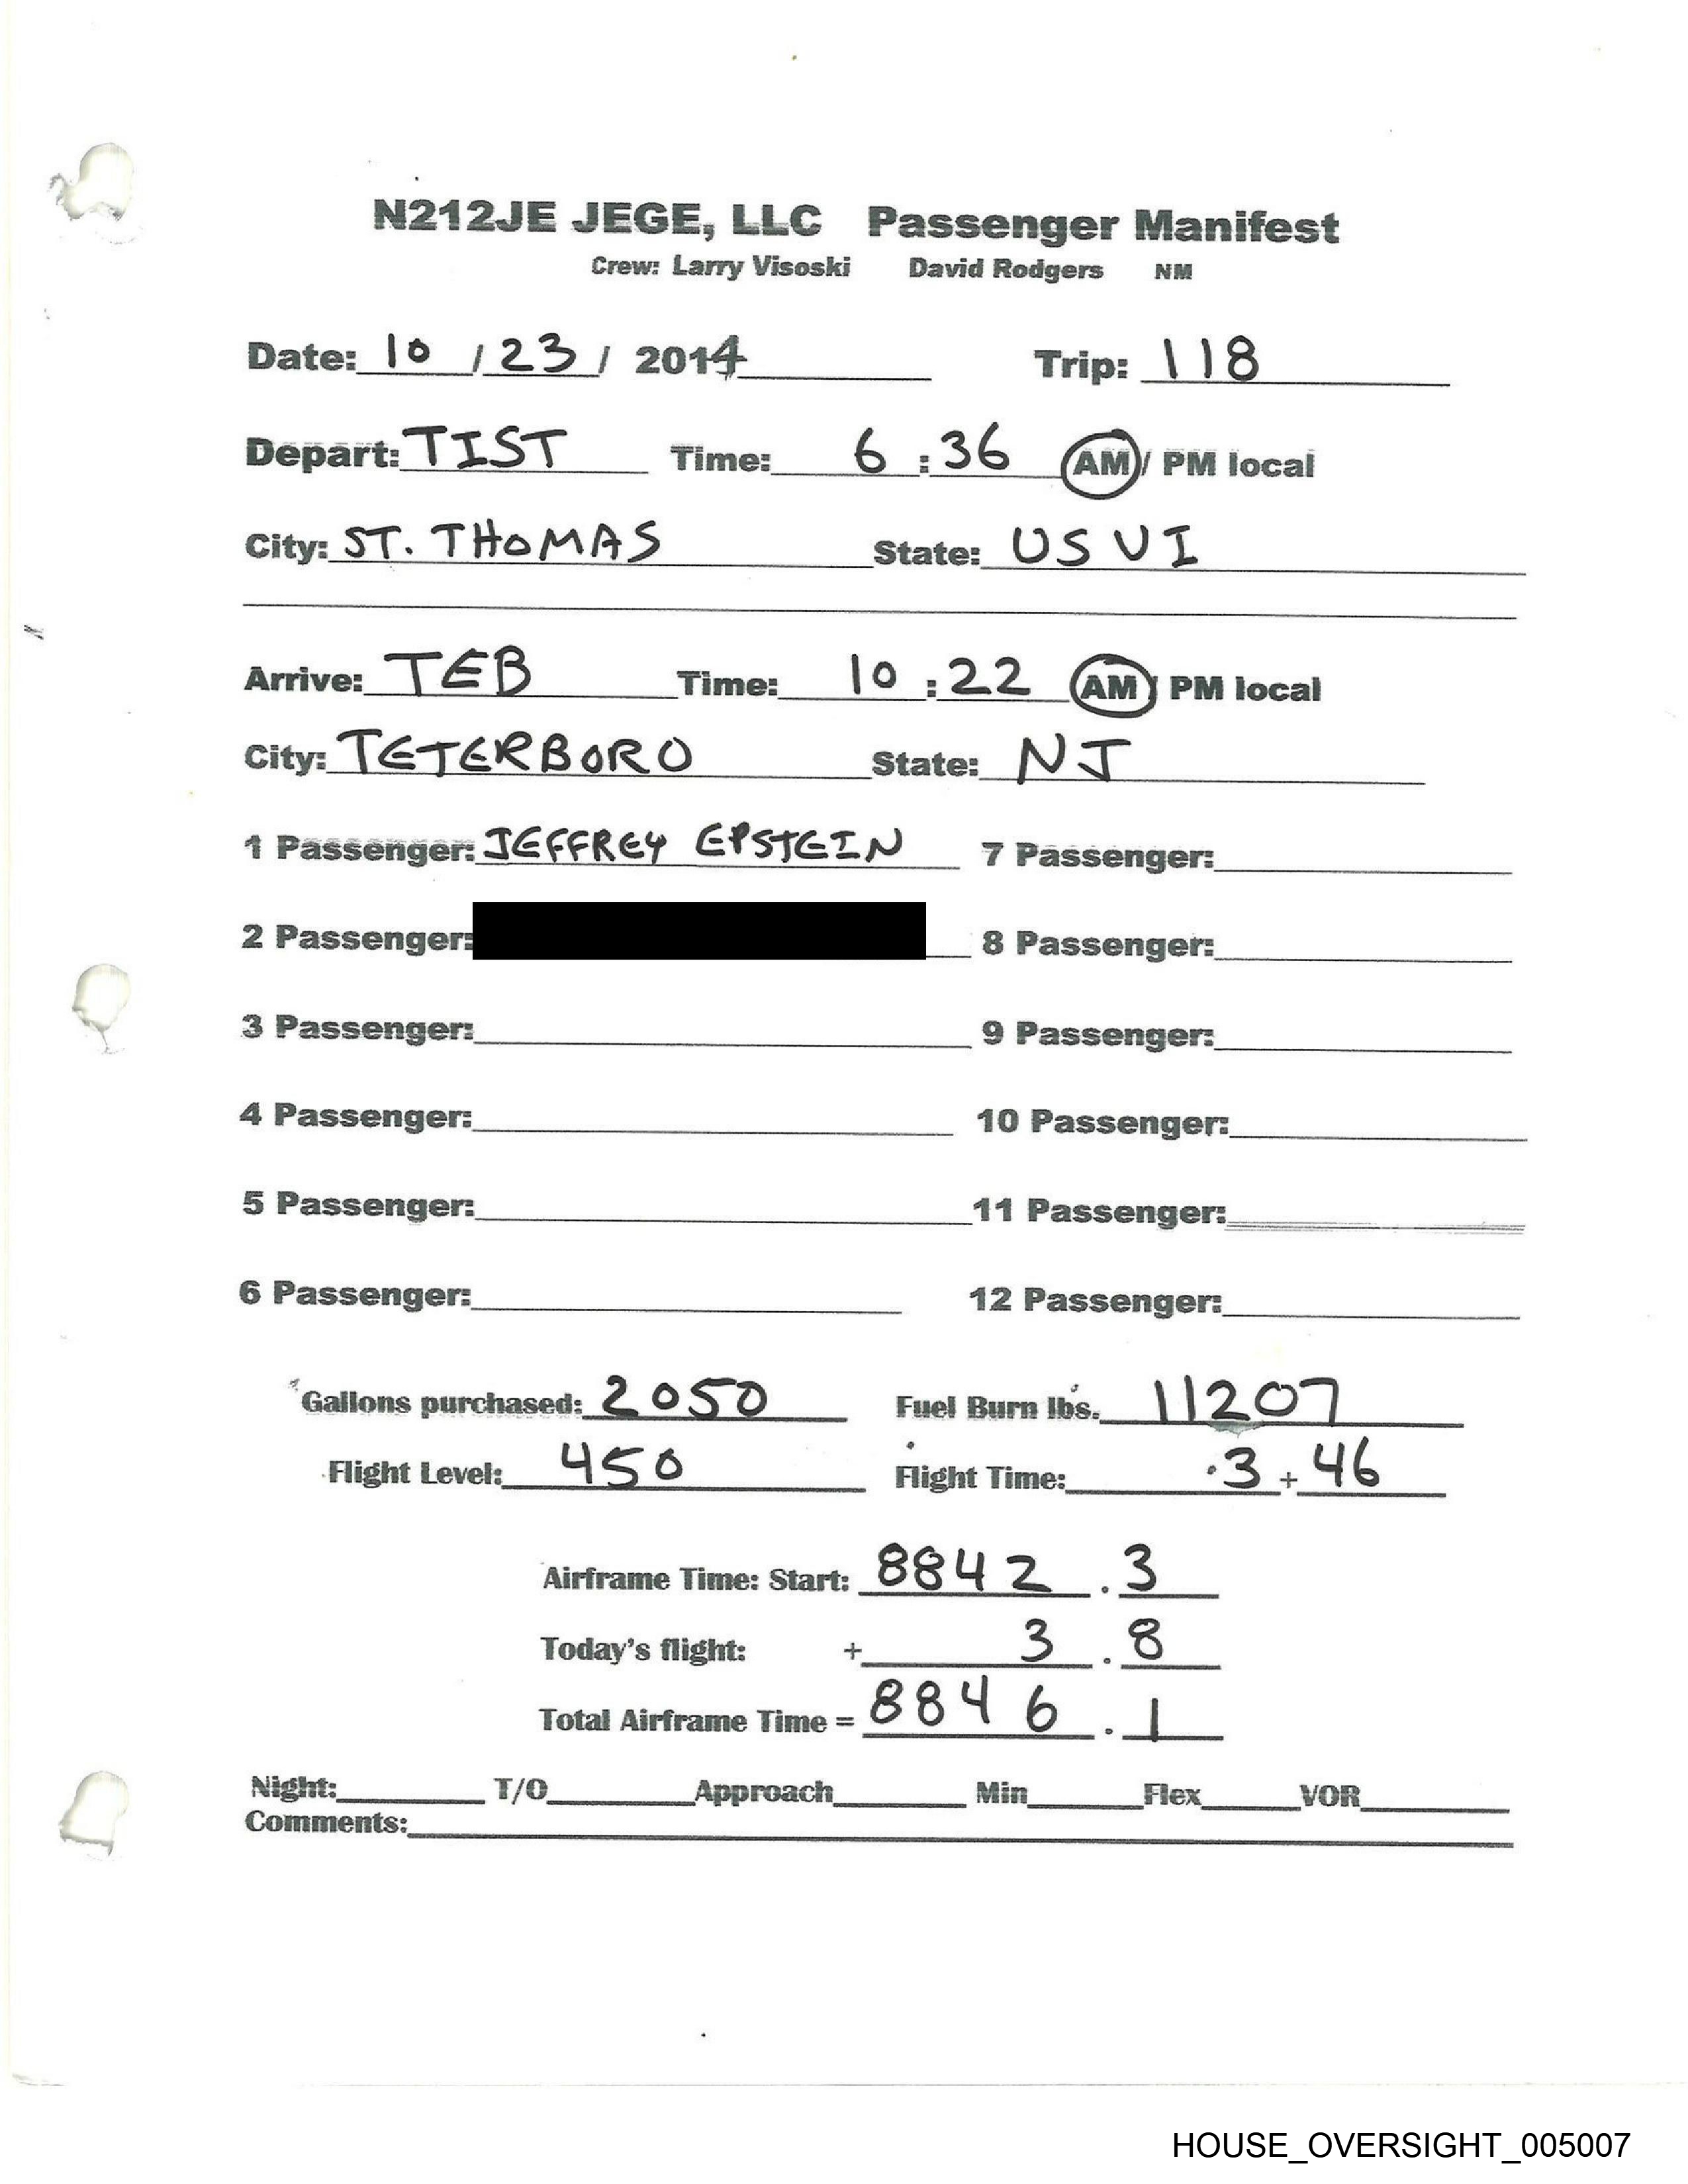 N212JE JEGE, LLC Passenger Manifest
Crew: Larry Visoski David Rodgers NM
Date: 10 / 23 / 2014 Trip: 118
Depart: TIST Time: 6 : 36 AM / PM local
City: ST. THOMAS State: USVI
Arrive: TEB Time: 10 : 22 AM / PM local
City: TETERBORO State: NJ
1 Passenger: JEFFREY EPSTEIN 7 Passenger:
2 Passenger: 8 Passenger:
3 Passenger: 9 Passenger:
4 Passenger: 10 Passenger:
5 Passenger: 11 Passenger:
6 Passenger: 12 Passenger:
Gallons purchased: 2050 Fuel Burn lbs. 11207
Flight Level: 450 Flight Time: 3 + 46
Airframe Time: Start: 8842 . 3
Today's flight: + 3 . 8
Total Airframe Time = 8846 . 1
Night: T/O Approach Min Flex VOR
Comments:
HOUSE_OVERSIGHT_005007